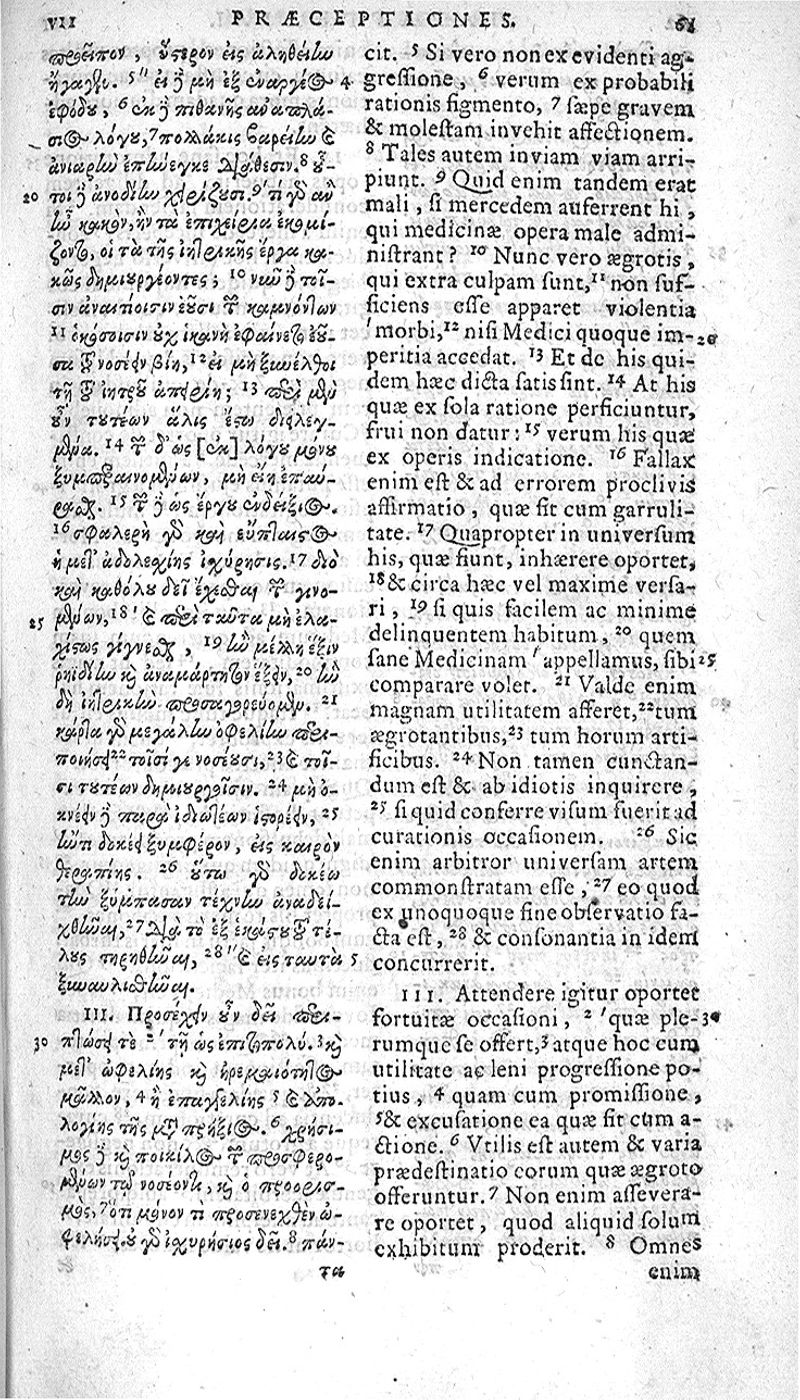 VII PRÆCEPTIONES. 61
προεῖπον, ὕστερον εἰς ἀληθείην
ἤγαγον. 5 '' εἰ δὲ μὴ ἐξ ἐναργέος 4
ἐφόδου, 6 ἐκ δὲ πιθανῆς ἀναπλά-
σιος λόγου, 7 πολλάκις βαρείην καὶ
ἀνιαρὴν ἐπήνεγκε διάθεσιν. 8 οὗ-
20 τοι δὲ ἀνοδίην χειρίζουσι. 9 ' τί γὰρ ἂν
ἦν κακὸν, ἢν τὰ ἐπίχειρα ἐκομί-
ζοντο, οἱ τὰ τῆς ἰητρικῆς ἔργα κα-
κῶς δημιουργέοντες; 10 νῦν δὲ τοῖ-
σιν ἀναιτίοισιν ἐοῦσι τῶν καμνόντων
11 ὁκόσοισιν οὐχ ἱκανὴ ἐφαίνετο ἐοῦ-
σα τοῦ νοσέειν βίη, 12 εἰ μὴ ξυνέλθοι
τῇ τοῦ ἰητροῦ ἀπειρίῃ; 13 περὶ μὲν
οὖν τουτέων ἅλις ἔστω διειλεγ-
μένα. 14 τῶν δ' ὡς [ἐκ] λόγου μόνου
ξυμπεραινομένων, μὴ εἴη ἐπαύ-
ρασθαι. 15 τῶν δὲ ὡς ἔργου ἐνδείξιος.
16 σφαλερὴ γὰρ καὶ εὔπταιστος
ἡ μετ' ἀδολεσχίης ἰσχύρησις. 17 διὸ
καὶ καθόλου δεῖ ἔχεσθαι τῶν γινο-
25 μένων, 18 ' καὶ περὶ ταῦτα μὴ ἐλα-
χίστως γίγνεσθαι, 19 ἢν μέλλῃ ἕξειν
ῥηϊδίην καὶ ἀναμάρτητον ἕξιν, 20 ἣν
δὴ ἰητρικὴν προσαγορεύομεν. 21
κάρτα γὰρ μεγάλην ὠφελίην περι-
ποιήσει 22 τοῖσί γε νοσέουσι, 23 καὶ τοῖ-
σι τουτέων δημιουργοῖσιν. 24 μὴ ὀ-
κνέειν δὲ παρὰ ἰδιωτέων ἱστορέειν, 25
ἤν τι δοκέῃ ξυμφέρον, εἰς καιρὸν
θεραπίης. 26 οὕτω γὰρ δοκέω
τὴν ξύμπασαν τέχνην ἀναδει-
χθῆναι, 27 διὰ τὸ ἐξ ἑκάστου τοῦ τέ-
λους τηρηθῆναι, 28 '' καὶ εἰς ταυτὰ 5
ξυναυλισθῆναι.
III. Προσέχειν οὖν δεῖ περι-
30 πτώσει τε 2 ' τῇ ὡς ἐπιτοπολύ. 3 καὶ
μετ' ὠφελίης καὶ ἠρεμαιότητος
μᾶλλον, 4 ἢ ἐπαγγελίης 5 καὶ ἀπο-
λογίης τῆς μετὰ πρήξιος. 6 χρήσι-
μος δὲ καὶ ποικίλος τῶν προσφερο-
μένων τῷ νοσέοντι, καὶ ὁ προορισ-
μὸς, 7 ὅτι μόνον τι προσενεχθὲν ὠ-
φελήσει. οὐ γὰρ ἰσχυρήσιος δεῖ. 8 πάν-
τα
cit. 5 Si vero non ex evidenti ag-
gressione, 6 verum ex probabili
rationis figmento, 7 sæpe gravem
& molestam invehit affectionem.
8 Tales autem inviam viam arri-
piunt. 9 Quid enim tandem erat
mali, si mercedem auferrent hi,
qui medicinæ opera male admi-
nistrant? 10 Nunc vero ægrotis,
qui extra culpam sunt, 11 non suf-
ficiens esse apparet violentia
' morbi, 12 nisi Medici quoque im- 20
peritia accedat. 13 Et de his qui-
dem hæc dicta satis sint. 14 At his
quæ ex sola ratione perficiuntur,
frui non datur: 15 verum his quæ
ex operis indicatione. 16 Fallax
enim est & ad errorem proclivis
affirmatio, quæ fit cum garruli-
tate. 17 Quapropter in universum
his, quæ fiunt, inhærere oportet,
18 & circa hæc vel maxime versa-
ri, 19 si quis facilem ac minime
delinquentem habitum, 20 quem
sane Medicinam ' appellamus, sibi 25
comparare volet. 21 Valde enim
magnam utilitatem afferet, 22 tum
ægrotantibus, 23 tum horum arti-
ficibus. 24 Non tamen cunctan-
dum est & ab idiotis inquirere,
25 si quid conferre visum fuerit ad
curationis occasionem. 26 Sic
enim arbitror universam artem
commonstratam esse, 27 eo quod
ex unoquoque fine observatio fa-
cta est, 28 & consonantia in idem
concurrerit.
III. Attendere igitur oportet
fortuitæ occasioni, 2 ' quæ ple- 30
rumque se offert, 3 atque hoc cum
utilitate ac leni progressione po-
tius, 4 quam cum promissione,
5 & excusatione ea quæ fit cum a-
ctione. 6 Vtilis est autem & varia
prædestinatio eorum quæ ægroto
offeruntur. 7 Non enim assevera-
re oportet, quod aliquid solum
exhibitum proderit. 8 Omnes
enim